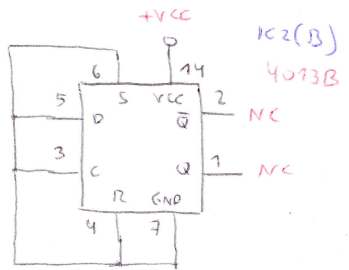 +VCC
K2(B)
4013B
6
14
S
VCC
5
D
Q
2
NC
3
C
Q
1
NC
R
GND
4
7